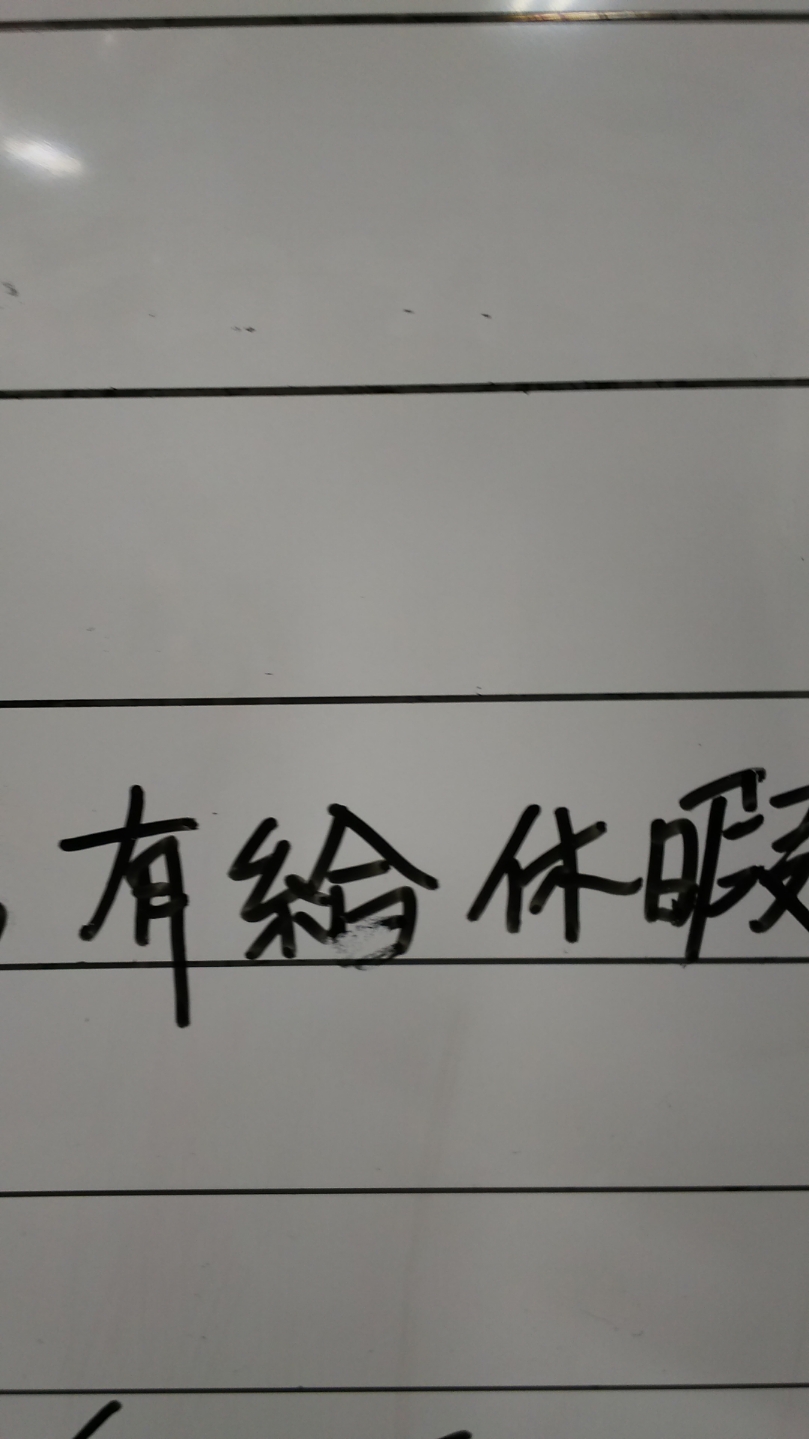 有給休暇